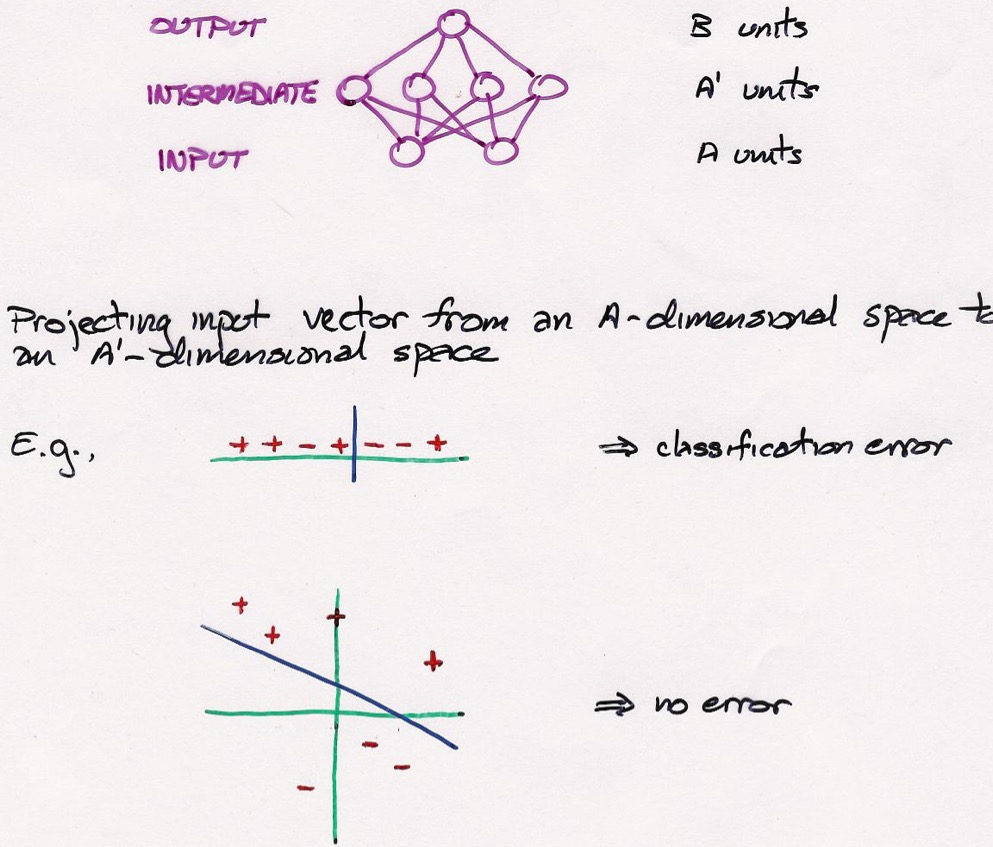 OUTPUT B units
INTERMEDIATE A' units
INPUT A units
Projecting input vector from an A-dimensional space to
an A'-dimensional space
E.g., + + - + - - + ⇒ classification error
+ + + +
⇒ no error
- - -